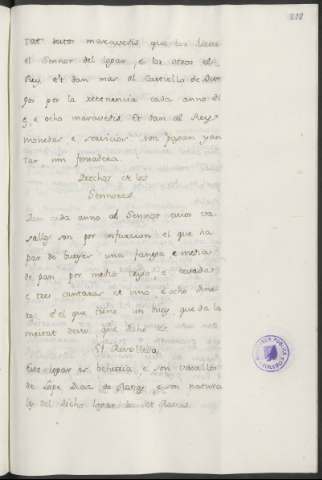 tat destos maravedis que los lieva
el Sennor del logar, e los otros el
Rey. e't dan mas al Castiello de Bur
gos por la retenencia cada anno di
ez e ocho maravedis. Et dan al Rey
monedas e servicios. non pagan yan
tar, nin fonsadera.
Derechos de los
Sennores
Dan cada anno al Sennor cuios va
sallos son por infurcion el que ha
par de bueyes una fanega e media
de pan por medio trigo, e cevada
e tres cantaras de vino e ocho dine
ros. e el que tiene un buey que da la
meitat desto que dicho es
Revilleja
Este logar es behetria, e son vasallos
de Lope Diaz de e son natura
les del dicho logar los de